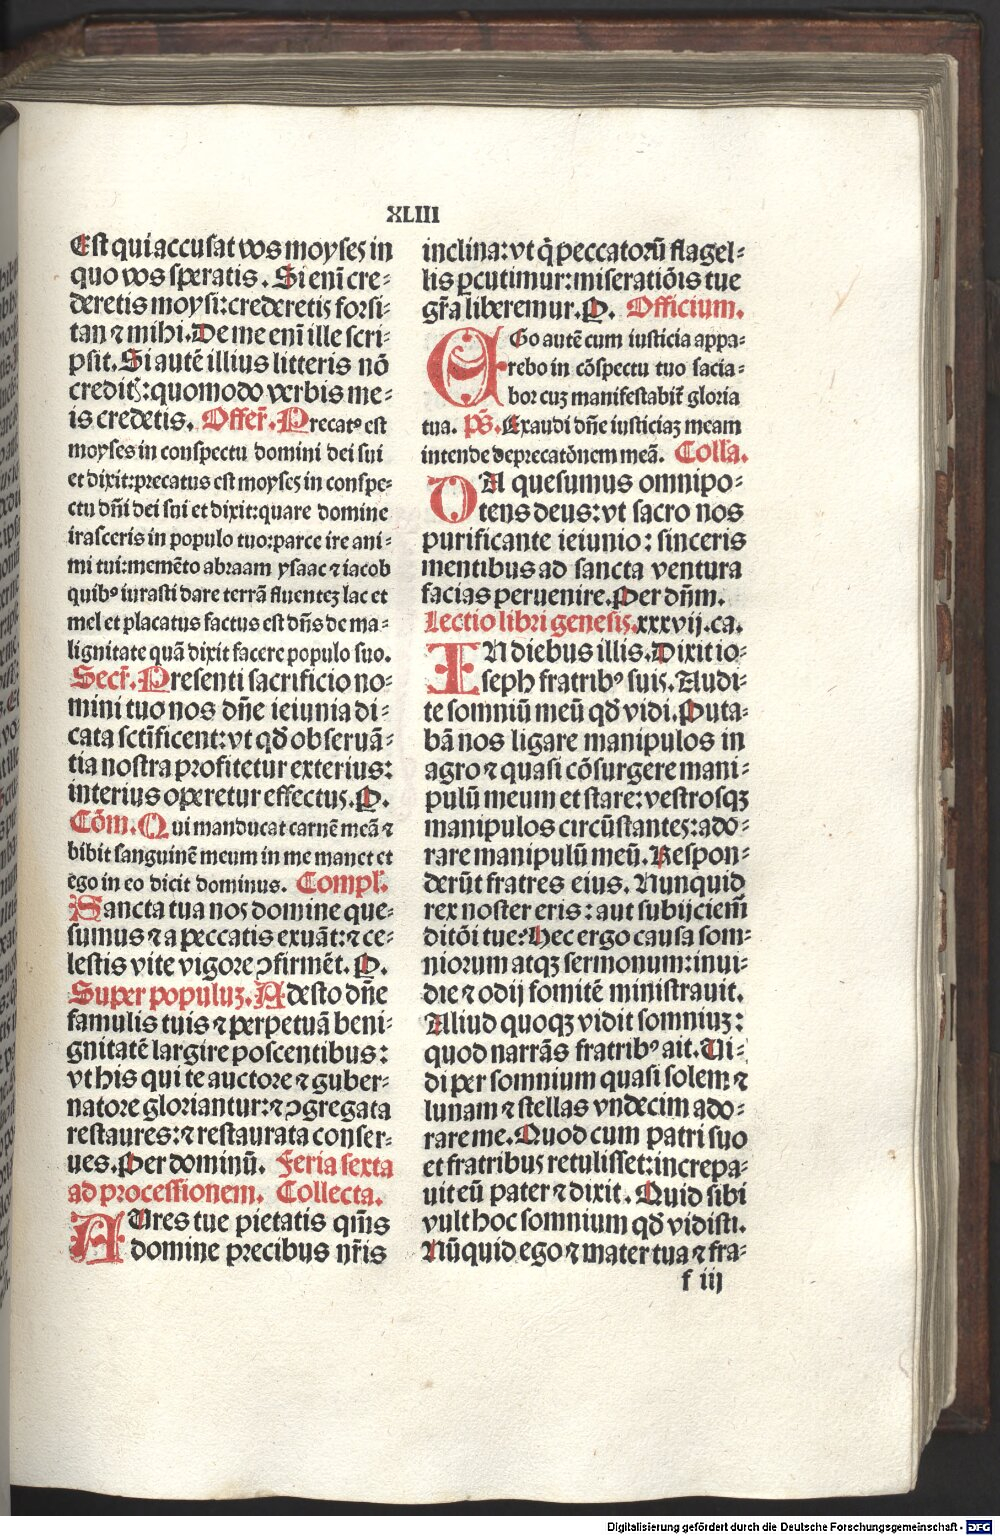 XLIII
Est qui accusat vos moyses in
quo vos speratis. Si eni͂ cre⸗
deretis moysi: crederetis forsi⸗
tan ⁊ mihi. De me eni͂ ille scri⸗
psit. Si autē illius litteris nō
creditꝭ: quomodo verbis me⸗
is credetis. Offer͂. Precatꝰ est
moyses in conspectu domini dei sui
et dixit: precatus est moyses in conspe⸗
ctu dn͂i dei sui et dixit: quare domine
irasceris in populo tuo: parce ire ani⸗
mi tui: memēto abraam ysaac ⁊ iacob
quibꝰ iurasti dare terrā fluentez lac et
mel et placatus factus est dn͂s de ma⸗
lignitate quā dixit facere populo suo.
Secr͂. Presenti sacrificio no⸗
mini tuo nos dn͂e ieiunia di⸗
cata sct͂ificent: vt qd̄ obseruā⸗
tia nostra profitetur exterius:
interius operetur effectus. P.
Cōm. Qui manducat carnē meā ⁊
bibit sanguinē meum in me manet et
ego in eo dicit dominus. Compl͂.
Sancta tua nos domine que⸗
sumus ⁊ a peccatis exuāt: ⁊ ce⸗
lestis vite vigore ꝯfirmēt. P.
Super populuz. Adesto dn͂e
famulis tuis ⁊ perpetuā beni⸗
gnitatē largire poscentibus:
vt his qui te auctore ⁊ guber⸗
natore gloriantur: ⁊ ꝯgregata
restaures: ⁊ restaurata conser⸗
ues. Per dominū. Feria sexta
ad processionem. Collecta.
AUres tue pietatis qm̄s
domine precibus nr͂is
inclina: vt q̇ peccatorū flagel⸗
lis ꝑcutimur: miseratiōis tue
gr͂a liberemur. P. Officium.
EGo autē cum iusticia appa⸗
rebo in cōspectu tuo sacia⸗
bor cuz manifestabit͂ gloria
tua. ps̄. Exaudi dn͂e iusticiaz meam
intende deprecatōnem meā. Colla.
DA quesumus omnipo⸗
tens deus: vt sacro nos
purificante ieiunio: sinceris
mentibus ad sancta ventura
facias peruenire. Per dn͂m.
Lectio libri genesis. xxxvij. ca.
IN diebus illis. Dixit io⸗
seph fratribꝰ suis. Audi⸗
te somniū meū qd̄ vidi. Puta⸗
bā nos ligare manipulos in
agro ⁊ quasi cōsurgere mani⸗
pulū meum et stare: vestrosqꝫ
manipulos circūstantes: ado⸗
rare manipulū meū. Respon⸗
derūt fratres eius. Nunquid
rex noster eris: aut subijciem͂
ditōi tue? Hec ergo causa som⸗
niorum atqꝫ sermonum: inui⸗
die ⁊ odij fomitē ministrauit.
Alliud quoqꝫ vidit somniuz:
quod narrās fratribꝰ ait. Ui⸗
di per somnium quasi solem ⁊
lunam ⁊ stellas vndecim ado⸗
rare me. Quod cum patri suo
et fratribus retulisset: increpa⸗
uit eū pater ⁊ dixit. Quid sibi
vult hoc somnium qd̄ vidisti.
Nūquid ego ⁊ mater tua ⁊ fra⸗
f iij
Digitalisierung gefördert durch die Deutsche Forschungsgemeinschaft - DFG